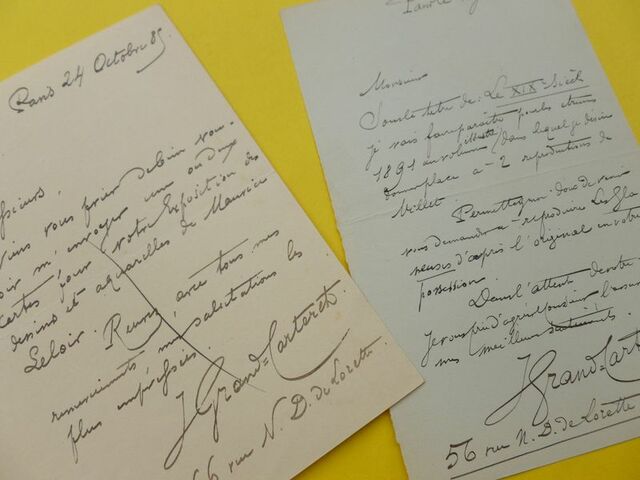 Paris 24 Octobre 85
Messieurs,
viens vous prier de bien vou-
loir m'envoyer une ou deux
cartes pour votre Exposition des
dessins et aquarelles de Maurice
Leloir. Recevez, avec tous mes
remerciements mes salutations les
plus empressées.
J Grand-Carteret
56 rue N. D. de Lorette
Monsieur
Sous le titre de: Le XIXe Siècle
je vais faire paraître pour les étrennes
1891 un volume illustré dans lequel je désire
donner place à 2 reproductions de
Millet.
Permettez moi donc de venir
vous demander à reproduire Les Gla
neuses d'après l'original en votre
possession.
Dans l'attente de votre
je vous prie d'agréer Monsieur l'assur
mes meilleurs sentiments.
J Grand-Carteret
56 rue N. D. de Lorette